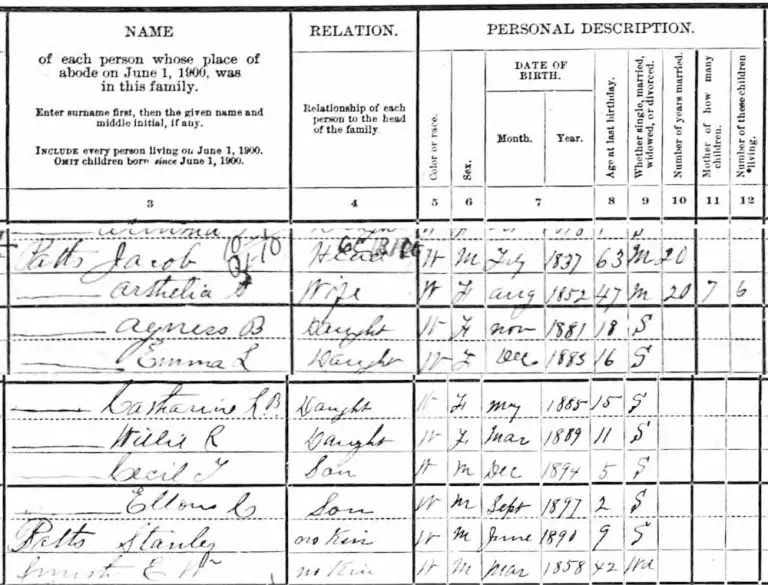 NAME
of each person whose place of
abode on June 1, 1900, was
in this family.
Enter surname first, then the given name and
middle initial, if any.
INCLUDE every person living on June 1, 1900.
OMIT children born since June 1, 1900.
RELATION.
Relationship of each
person to the head
of the family
PERSONAL DESCRIPTION.
Color or race.
Sex.
DATE OF
BIRTH.
Month. Year.
Age at last birthday.
Whether single, married,
widowed, or divorced.
Number of years married.
Mother of how many
children.
Number of these children
living.
3 4 5 6 7 8 9 10 11 12
Potts Jacob Head W M July 1837 63 M 20
Arthelia Wife W F aug 1852 47 M 20 7 6
Agness B Daught W F nov 1881 18 S
Emma L Daught W F Dec 1883 16 S
Catharine L B Daught W F may 1885 15 S
Willie R Daught W F Mar 1889 11 S
Cecil T Son W M Dec 1894 5 S
Ellone C Son W M Sept 1897 2 S
Potts Stanley no Kin W M June 1890 9 S
E no Kin W M Mar 1858 42 Wd